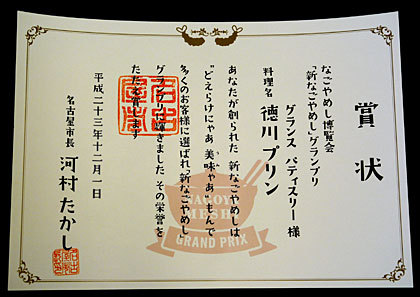 賞状
なごやめし博覧会
「新なごやめし」グランプリ
グランス パティスリー 様
料理名 徳川プリン
あなたが創られた 新なごやめしは
"どえらけにゃあ 美味ゃあ"もんで
多くのお客様に選ばれ「新なごやめし」
グランプリに輝きました その栄誉を
たたえ賞します
平成二十三年十二月一日
名古屋市長 河村たかし
NAGOYA
MESHI
GRAND PRIX